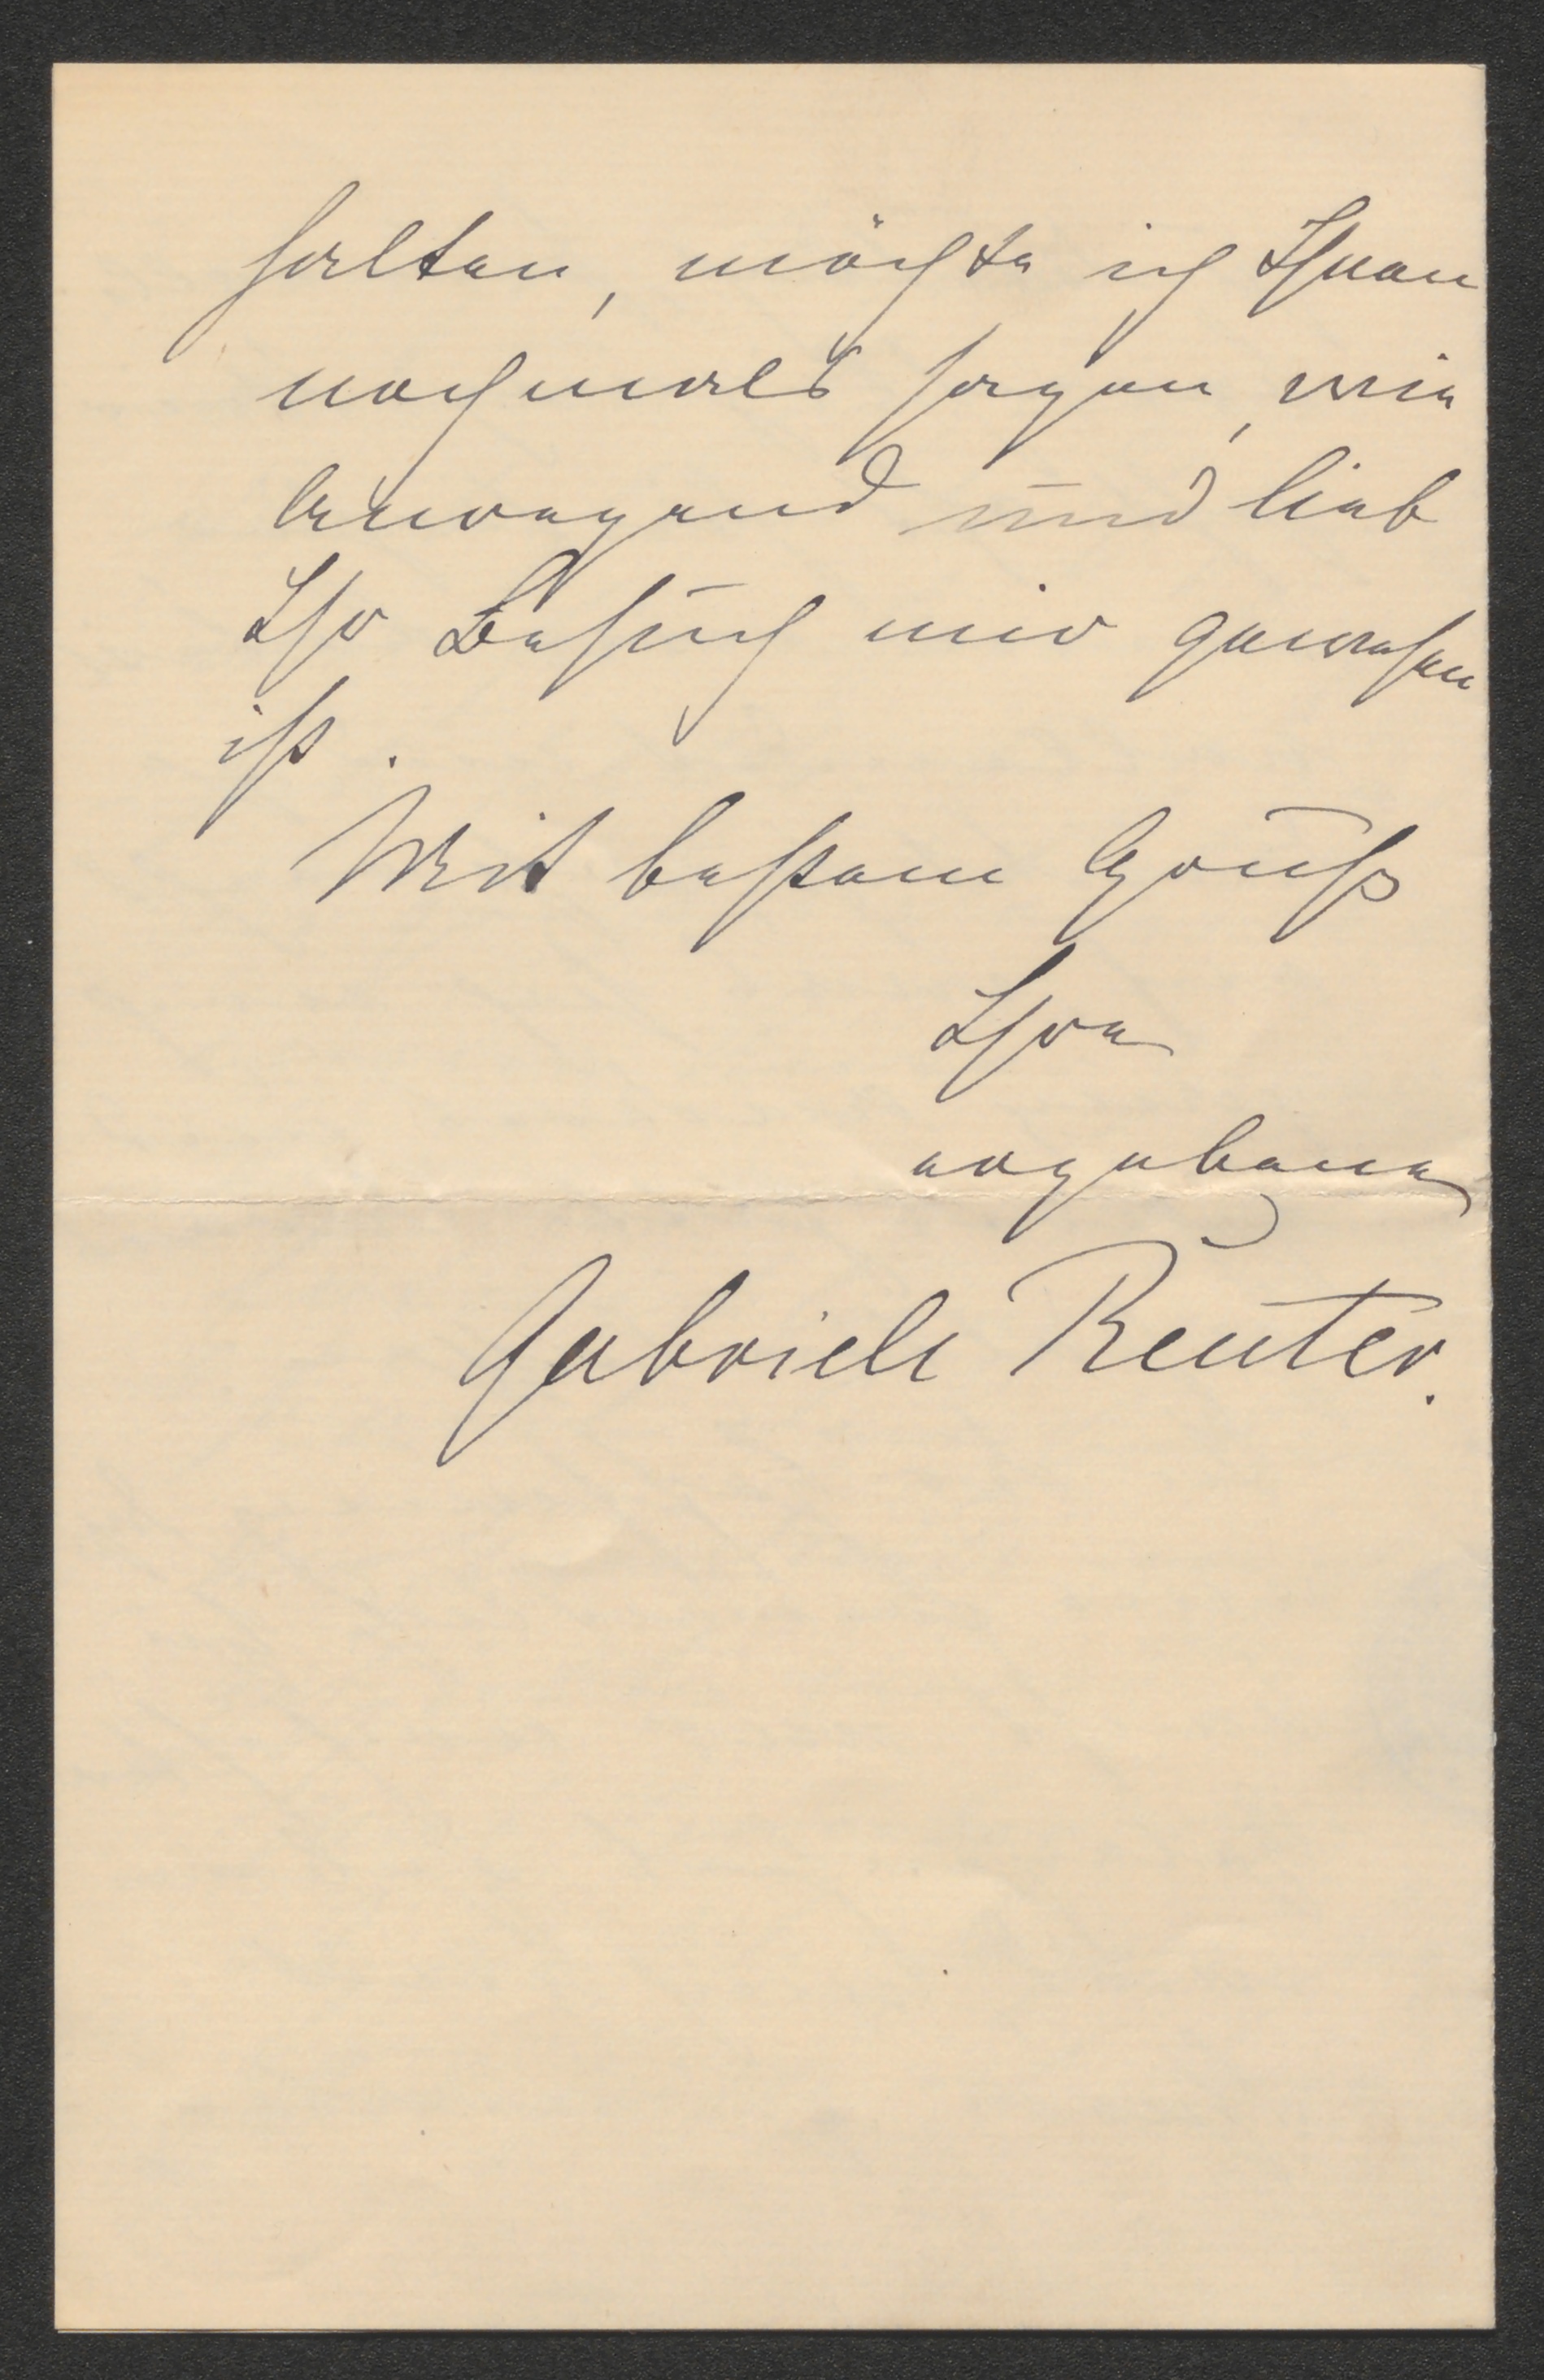 halten, möchte ich Ihnen
nochmals sagen, wie
anregend und lieb
Ihr Besuch mir gewesen
ist.
Mit bestem Gruß
Ihre
ergebene
Gabriele Reuter.